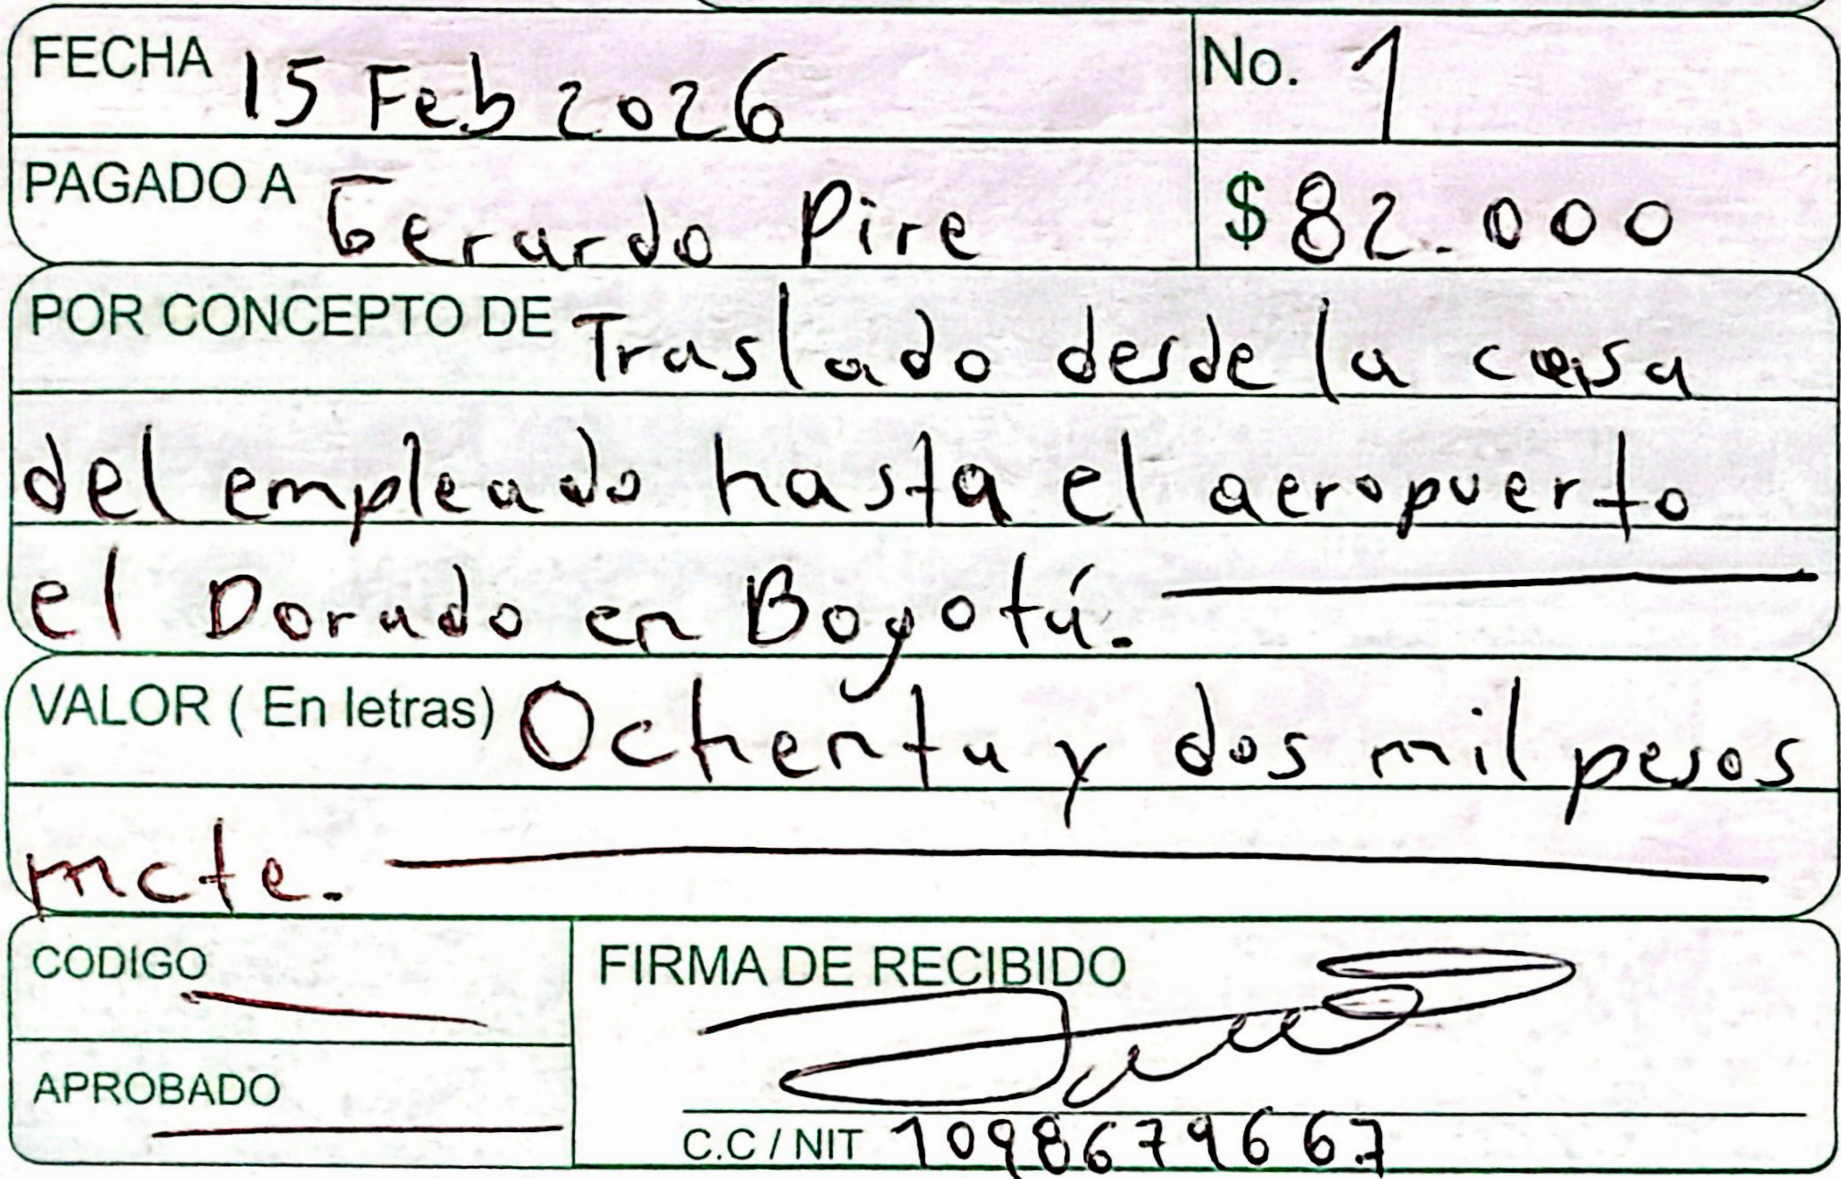 FECHA 15 Feb 2026 No. 1
PAGADO A Gerardo Pire $ 82.000
POR CONCEPTO DE Traslado desde la casa
del empleado hasta el aeropuerto
el Dorado en Bogotá.
VALOR ( En letras) Ochenta y dos mil pesos
mcte.
CODIGO FIRMA DE RECIBIDO
APROBADO
C.C / NIT 1098679667